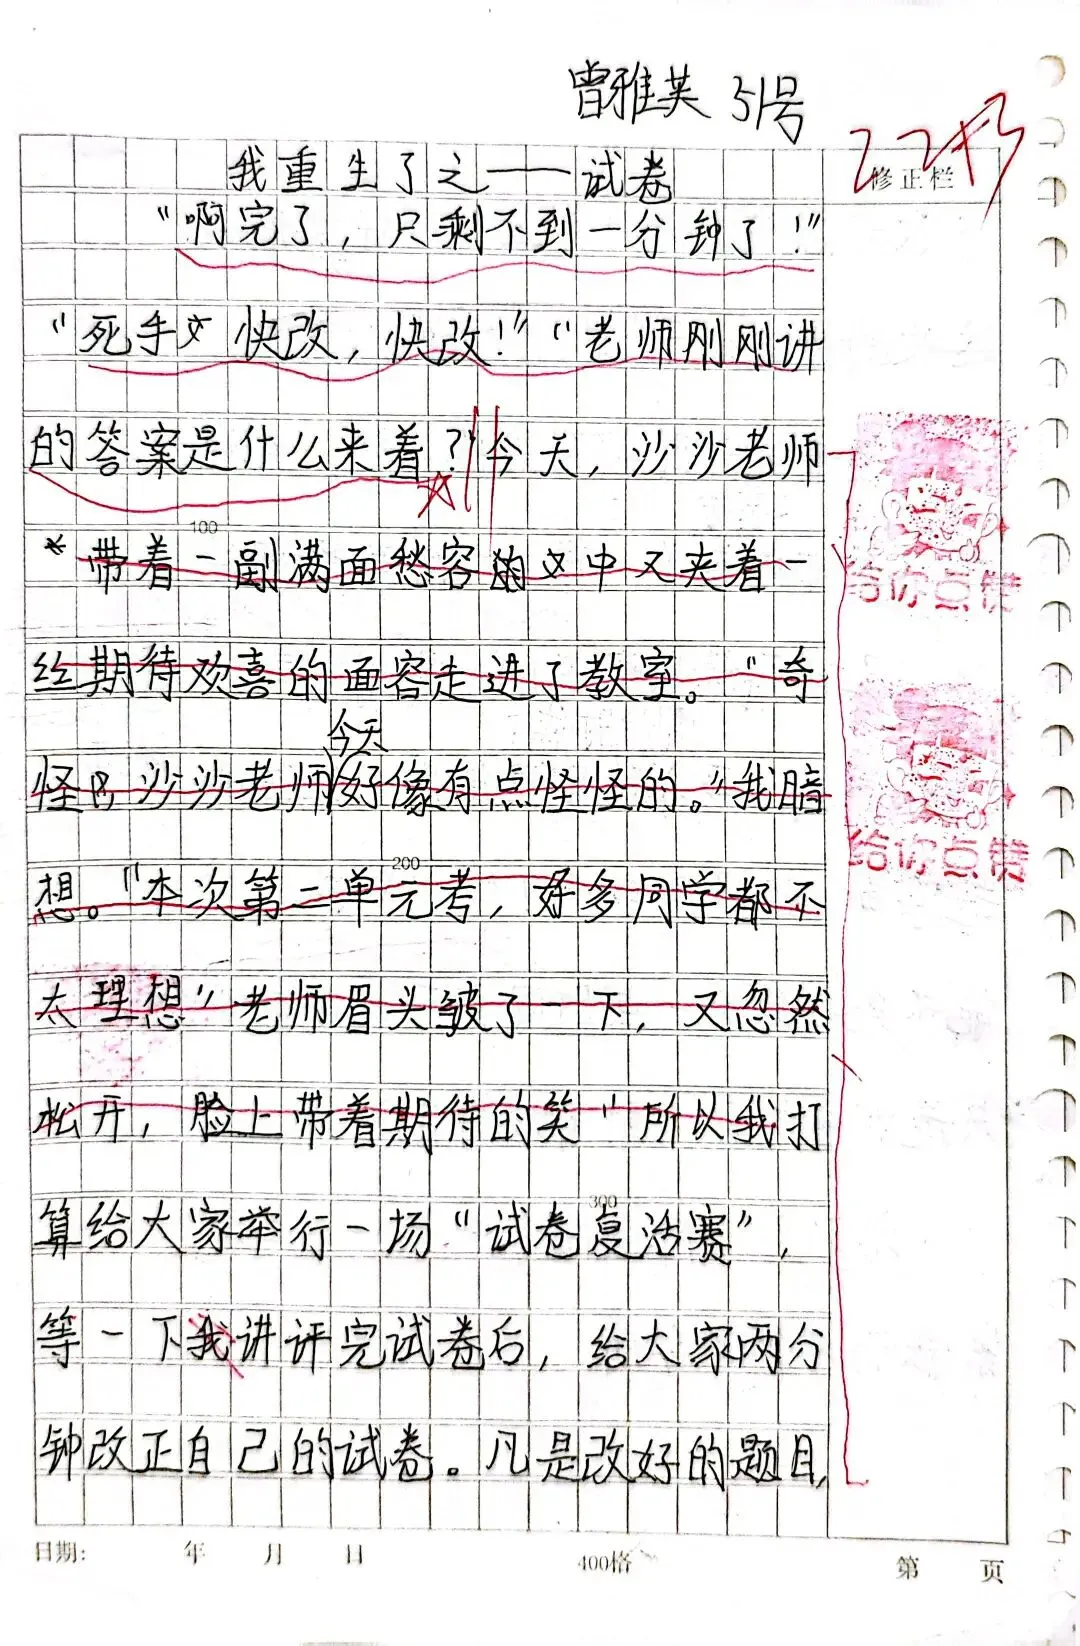 曾雅英 51号
修正栏
我重生了之——试卷
“啊完了，只剩不到一分钟了！”
“死手快改，快改！”“老师刚刚讲
的答案是什么来着？今天，沙沙老师
100
带着一副满面愁容的中又夹着一
给你点赞
丝期待欢喜的面容走进了教室。“奇
今天
怪吧，沙沙老师好像有点怪怪的。”我暗
给你点赞
200
想。“本次第二单元考，好多同学都不
太理想”老师眉头皱了一下，又忽然
松开，脸上带着期待的笑“所以我打
300
算给大家举行一场“试卷复活赛”，
等一下我讲评完试卷后，给大家两分
钟改正自己的试卷。凡是改好的题目，
日期： 年 月 日 400格 第 页